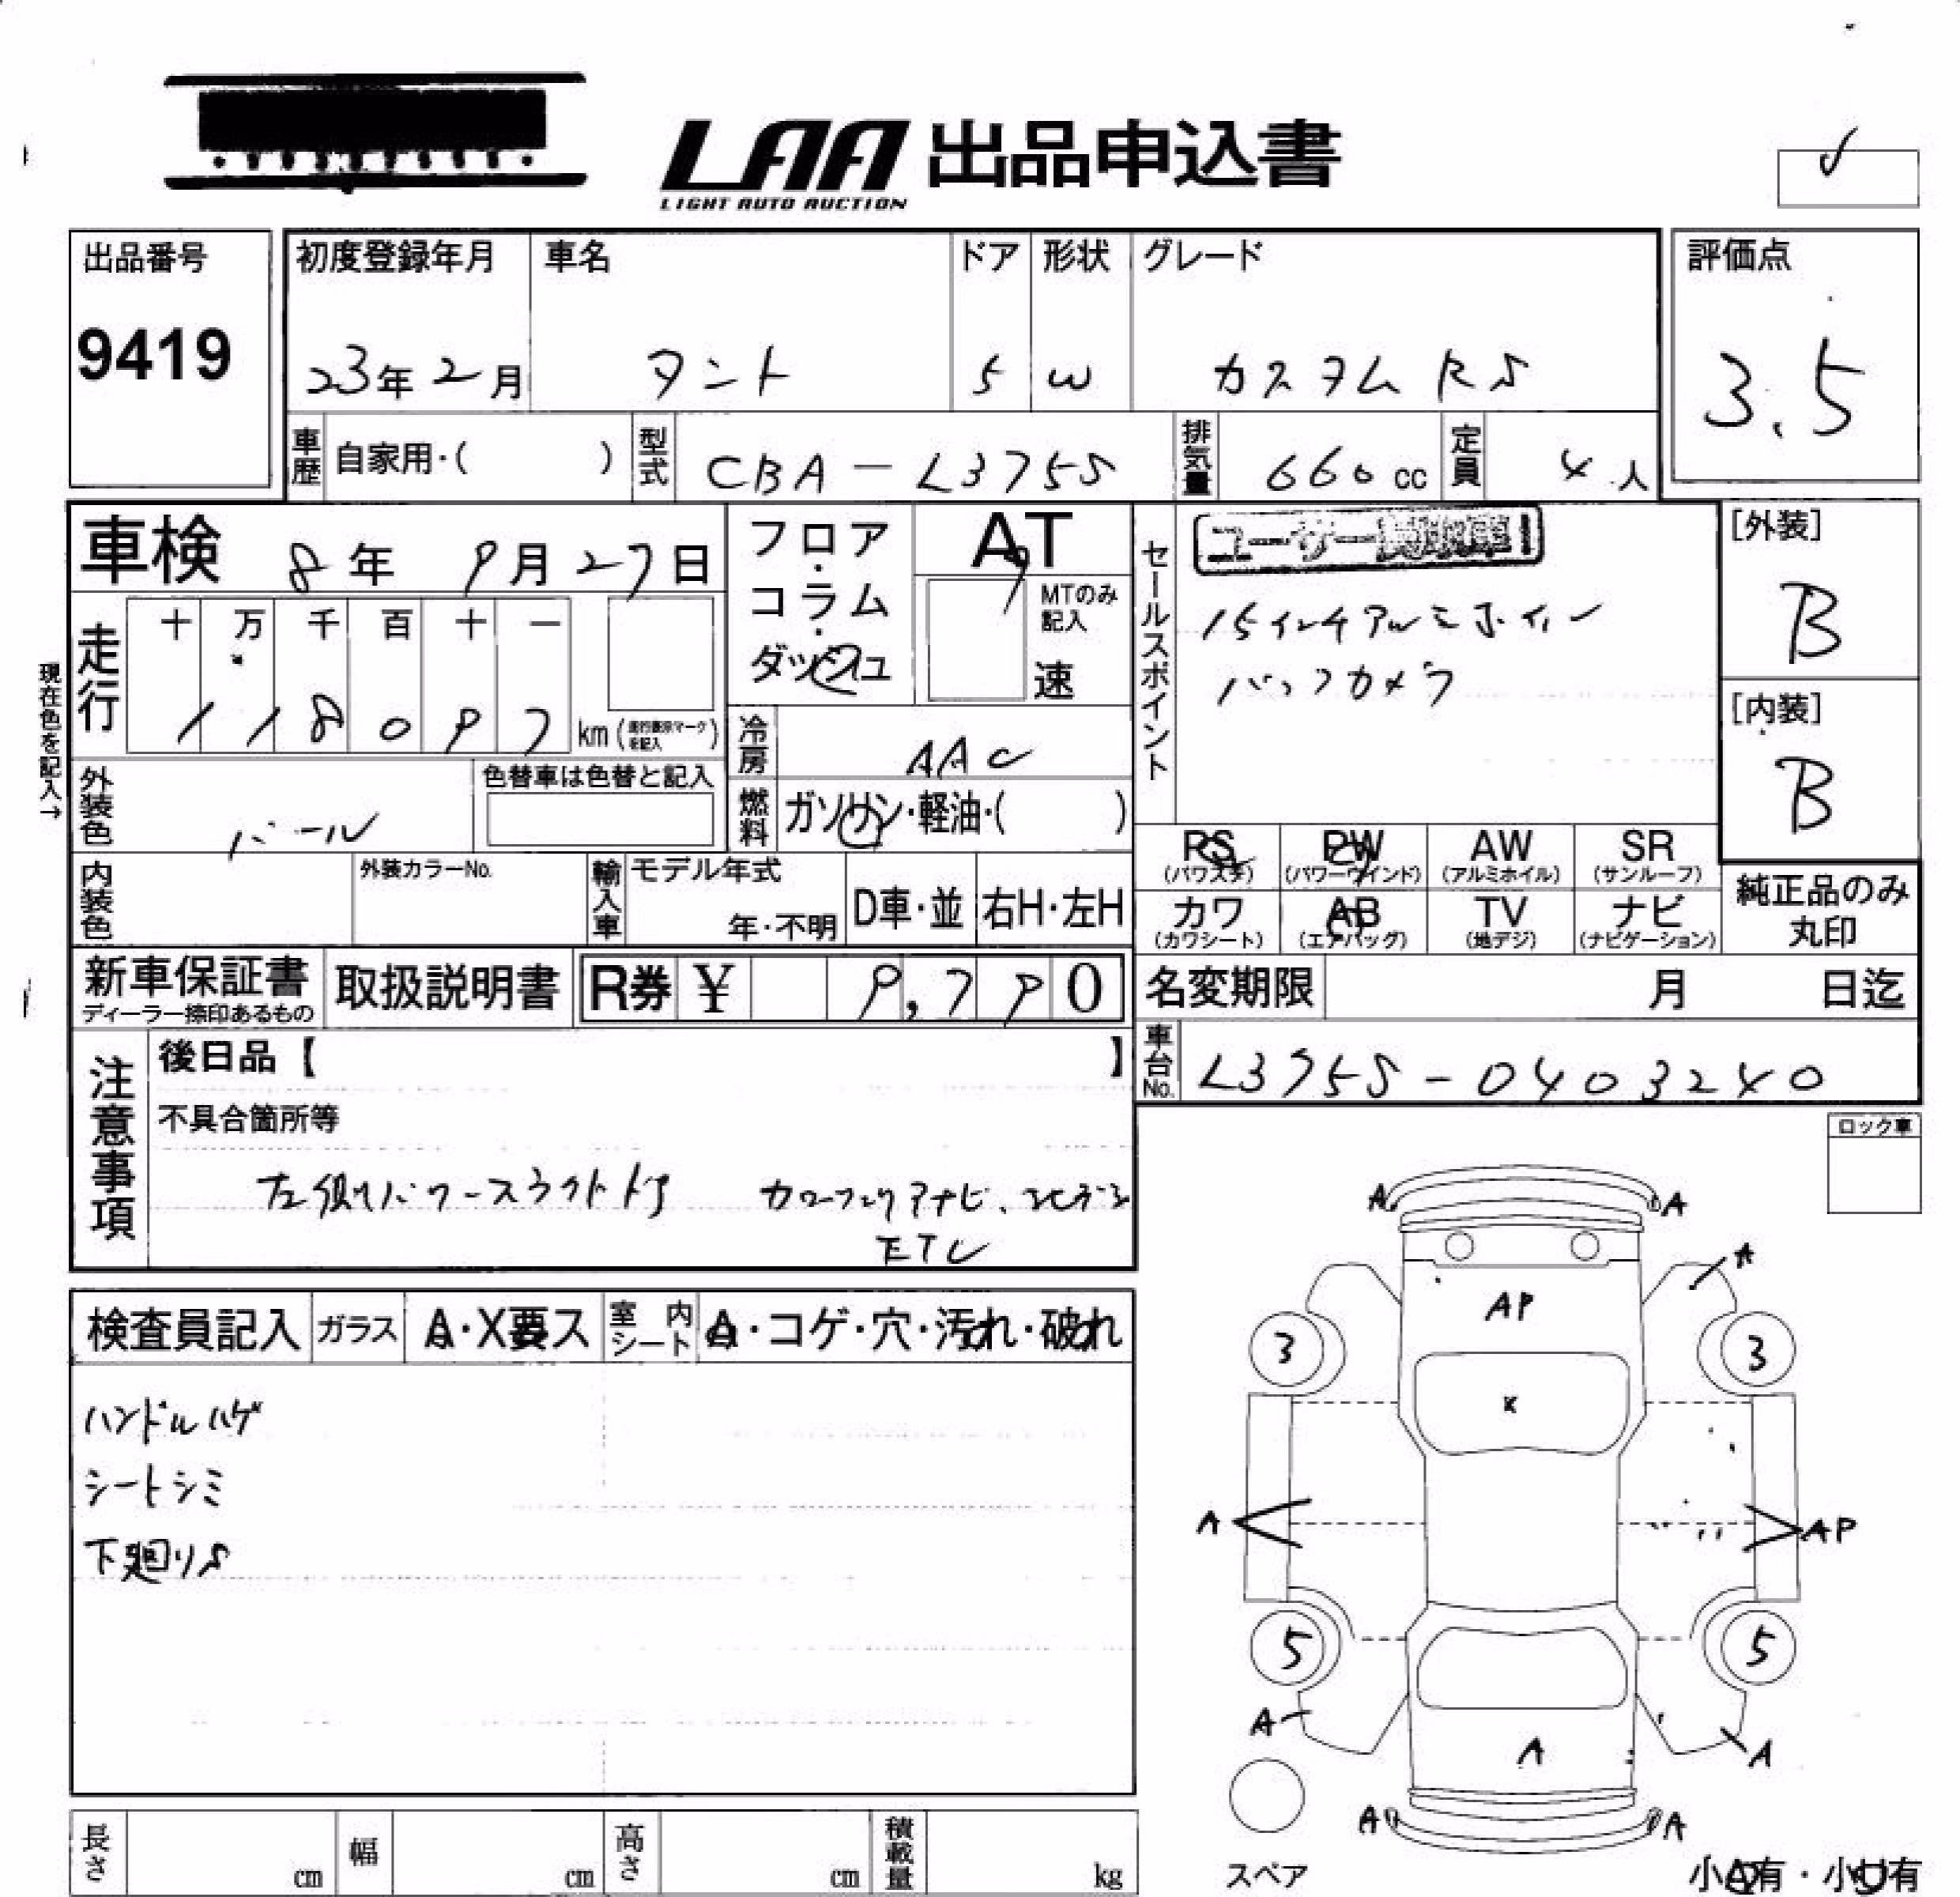 LAA 出品申込書
LIGHT AUTO AUCTION
出品番号
9419
初度登録年月
23年2月
車名
タント
ドア
5
形状
W
グレード
カスタムRS
評価点
3.5
車歴
自家用・( )
型式
CBA-L375S
排気量
660cc
定員
4人
車検 8年 9月27日
フロア・コラム・ダッシュ
AT
MTのみ記入
速
現在色を記入→
走行
十 万 千 百 十 一
1 1 8 0 9 7 km (走行表示マークを記入)
冷房
AAC
燃料
ガソリン・軽油・( )
外装色
パール
色替車は色替と記入
内装色
外装カラーNo.
輸入車
モデル年式
年・不明
D車・並
右H・左H
セールスポイント
ユーザー買取車
15インチアルミホイル
バックカメラ
[外装]
B
[内装]
B
PS (パワステ)
PW (パワーウインド)
AW (アルミホイル)
SR (サンルーフ)
カワ (カワシート)
AB (エアバッグ)
TV (地デジ)
ナビ (ナビゲーション)
純正品のみ丸印
新車保証書
ディーラー捺印あるもの
取扱説明書
R券 ¥ 9,790
名変期限 月 日迄
車台No.
L375S-0403240
注意事項
後日品【 】
不具合箇所等
左側パワースライドドア
ナビ、
ETC
ロック車
検査員記入
ガラス
A・X要ス
室内シート
A・コゲ・穴・汚れ・破れ
ハンドルハゲ
シートシミ
下廻りS
A A
A
AP
3 3
K
A AP
5 5
A A
A
A A
スペア
小A有・小U有
長さ cm
幅 cm
高さ cm
積載量 kg